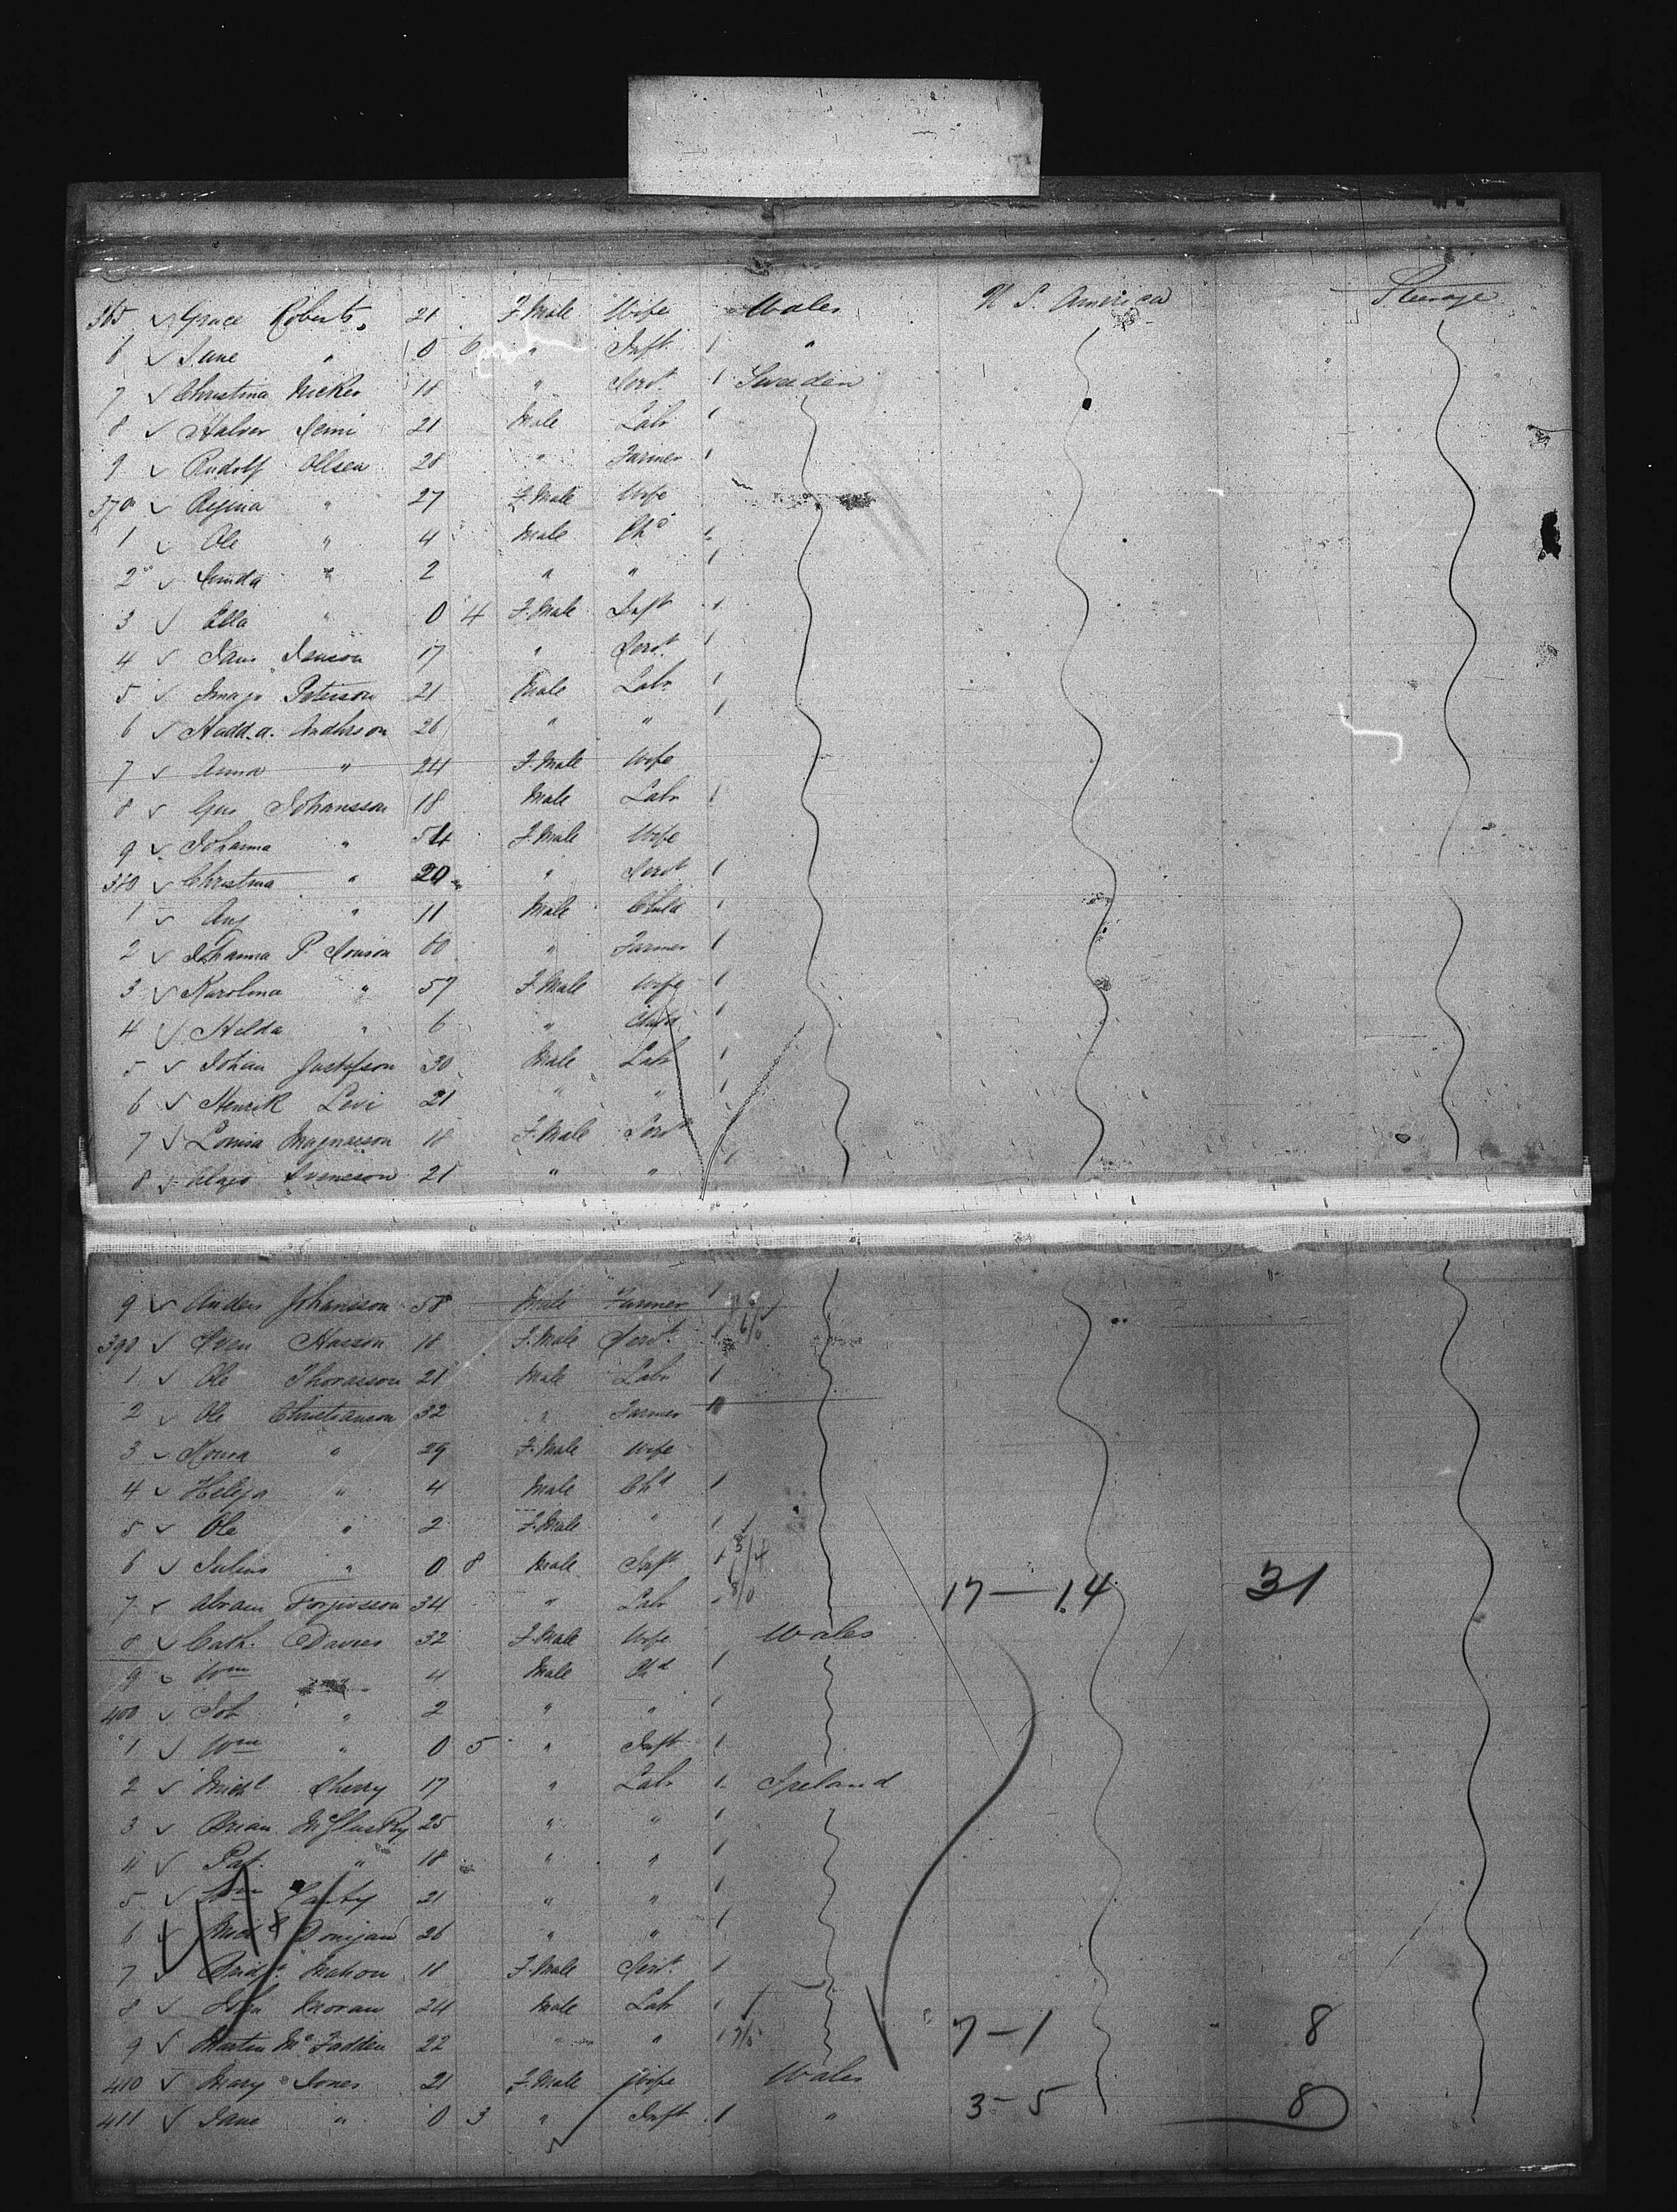 365 ✓ Grace Roberts 21 F.Male Wife Wales U S. America Steerage
6 ✓ Jane " 0 6 " Inft 1 "
7 ✓ Christina 18 " Servt 1 Sweeden
8 ✓ Halver 21 Male Labr 1
9 ✓ Rudolf Ollsen 28 " Farmer 1
370 ✓ Regina " 27 F.Male Wife
1 ✓ Ole " 4 Male Chd 1
2 ✓ " 2 " " 1
3 ✓ Ella " 0 4 F.Male Inft 1
4 ✓ 17 " Servt 1
5 ✓ Peterson 21 Male Labr 1
6 ✓ Andherson 26 " " 1
7 ✓ Anna " 24 F.Male Wife
8 ✓ Gus Johansson 18 Male Labr 1
9 ✓ Johanna " 54 F.Male Wife
380 ✓ Christina " 20 " Servt 1
1 ✓ Aug " 11 Male Child 1
2 ✓ Johanna P. 60 " Farmer 1
3 ✓ Karolina " 57 F.Male Wife 1
4 ✓ Helda " 6 " Child 1
5 ✓ Johan Gustafson 30 Male Labr 1
6 ✓ Henrik Levi 21 " " 1
7 ✓ Louisa Magnusson 18 F.Male Servt
8 ✓ 21 " " 1
9 ✓ Anders Johansson 58 Male Farmer 1
390 ✓ Sven 18 F.Male Servt 1
1 ✓ Ole 21 Male Labr 1
2 ✓ Ole Christianson 32 " Farmer 1
3 ✓ " 29 F.Male Wife
4 ✓ Helega " 4 Male Chd 1
5 ✓ Ole " 2 F.Male " 1
6 ✓ Julius " 0 8 Male Inft 1
7 ✓ Abram 34 " Labr 17—14 31
8 ✓ Cath. Davies 32 F.Male Wife Wales
9 ✓ Wm 4 Male Chd 1
400 ✓ Joh " 2 " " 1
1 ✓ Wm " 0 5 " Inft 1
2 ✓ Michl Cherry 17 " Labr 1 Ireland
3 ✓ Brian McGlusky 25 " " 1
4 ✓ Pat. " 18 " " 1
5 ✓ 21 " " 1
6 ✓ Michl Donigan 26 " " 1
7 ✓ Bridgt Mahon 18 F.Male Servt 1
8 ✓ John Moran 24 Male Labr 1
9 ✓ Martin McFadden 22 " " 1 7—1 8
410 ✓ Mary Jones 21 F.Male Wife Wales
411 ✓ Jane " 0 3 " Inft 1 " 3-5 8